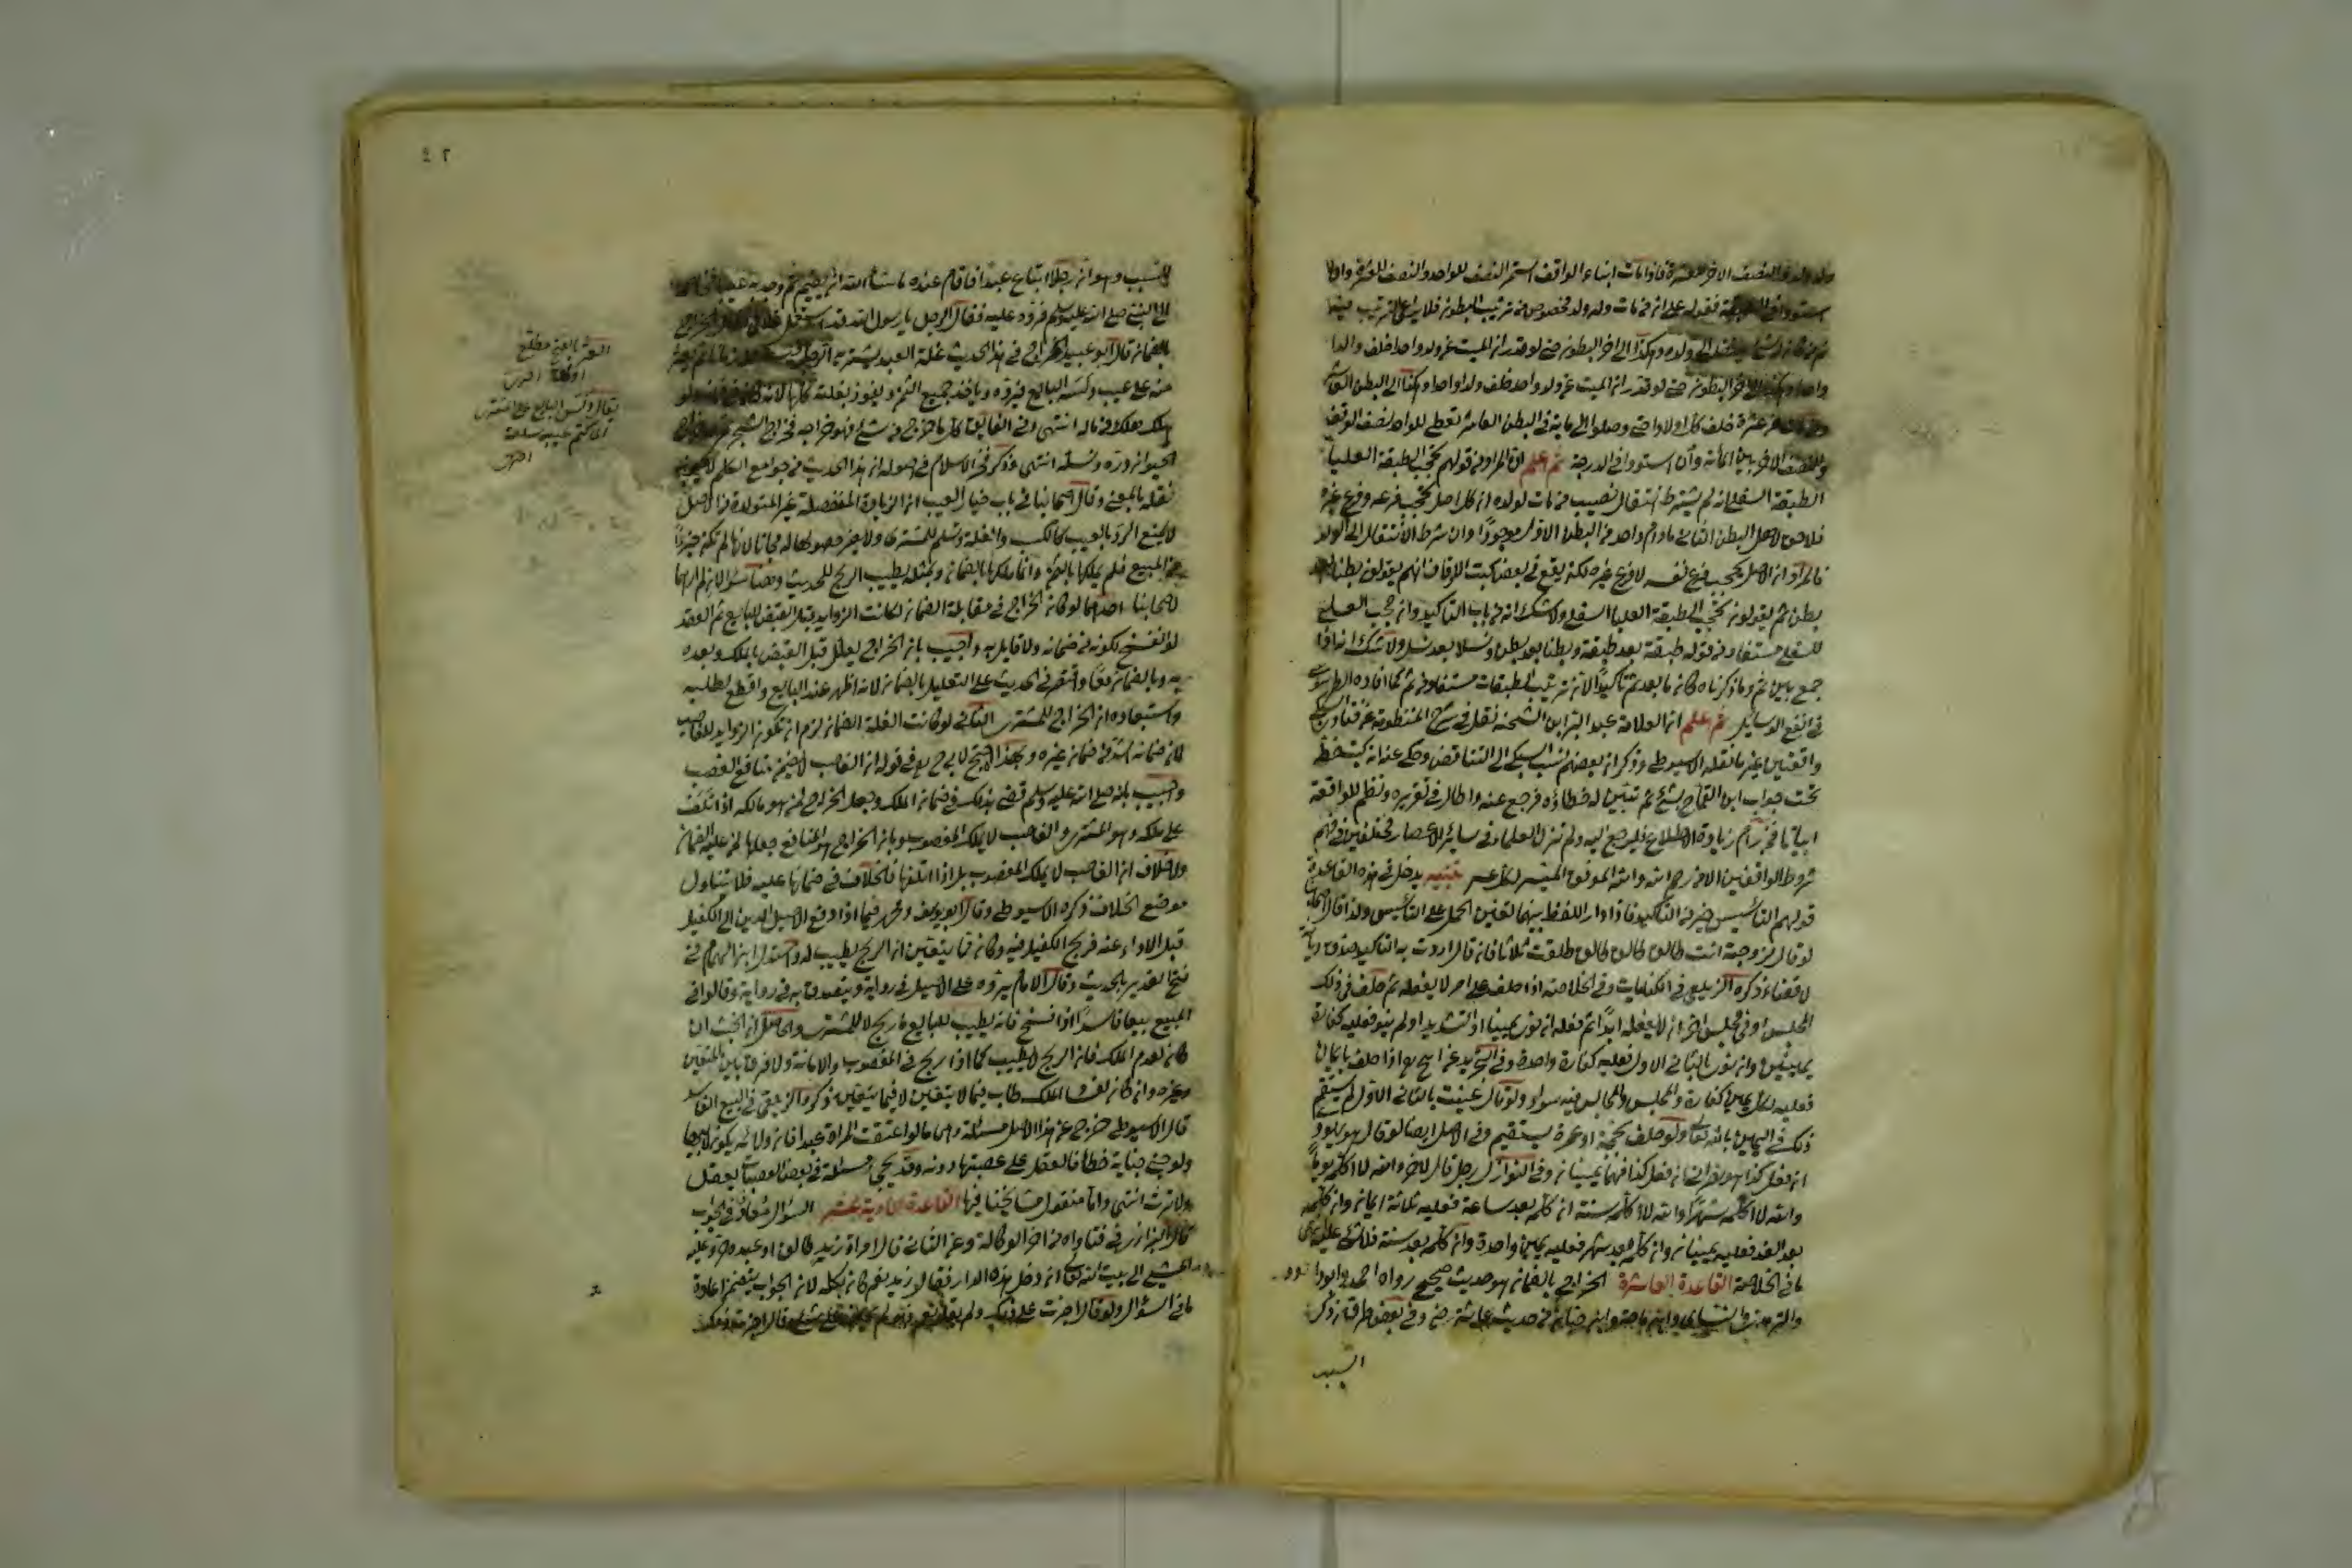 ولد ولد والنصف الاخر للعشرة فاذا مات ابناء الواقف استمر النصف للواحد والنصف للعشرة وان
استووا في الطبقة فقوله على ان من مات وله ولد مخصوص من ترتيب البطون فلا يراعى الترتيب فيه
ولده وهكذا الى اخر البطون حتى لو قدر ان الميت عن ولد واحد خلف ولدا
الى اخر البطون حتى لو قدر ان الميت عن ولد واحد خلف ولدا واحدا وهكذا الى البطن العاشر
ومن مات عن عشرة خلف كل اولادا حتى وصلوا الى مائة في البطن العاشر تعطى للواحد نصف الوقف
والنصف الاخر بين المائة وان استووا في الدرجة ثم اعلم ان المراد من قولهم تحجب الطبقة العليا
الطبقة السفلى ان لم يشترط انتقال نصيب من مات لولده ان كل اصل يحجب فرعه وفرع غيره
فلا حق لاهل البطن الثاني مادام واحد من البطن الاول موجودا وان شرط الانتقال الى الولد
فالمراد ان الاصل يحجب فرع نفسه لا فرع غيره لكنه يقع في بعض كتب الاوقاف انهم يقولون بطنا بعد
بطن ثم يقولون تحجب الطبقة العليا السفلى ولا شك انه من باب التاكيد وان حجب العليا
للسفلى مستفاد من قوله طبقة بعد طبقة وبطنا بعد بطن ونسلا بعد نسل ولا شك انه اذا
جمع بين ثم وما ذكرناه كان ما بعد ثم تاكيدا لان ترتيب الطبقات مستفاد من ثم كما افاده الطرسوسي
في انفع الوسايل ثم اعلم ان العلامة عبد البر ابن الشحنة نقل في شرح المنظومة عن فتاوى السبكي
واقعتين غير ما نقله الاسيوطي وذكر ان بعضهم نسب السبكي الى التناقض وحكى عنه انه كتب خطه
تحت جواب ابن القماح بشئ ثم تبين له خطاؤه فرجع عنه واطال في تقريره ونظم للواقعة
ابياتا فمن رام زيادة الاطلاع فليرجع اليه ولم تزل العلماء في سائر الاعصار مختلفين في فهم
شروط الواقفين الا من رحم الله والله الموفق الميسر لكل عسير تنبيه يدخل في هذه القاعدة
قولهم التاسيس خير من التاكيد فاذا دار اللفظ بينهما تعين الحمل على التاسيس ولذا قال اصحابنا
لو قال لزوجته انت طالق طالق طالق طلقت ثلاثا فان قال اردت به التاكيد صدق ديانة
لا قضاء ذكره الزيلعي في الكنايات وفي الخلاصة اذا حلف على امر لا يفعله ثم حلف في ذلك
المجلس او في مجلس اخر ان لا يفعله ابدا ثم فعله ان نوى يمينا او التشديد او لم ينو فعليه كفارة
يمينين وان نوى بالثاني الاول فعليه كفارة واحدة وفي التجريد عن ابي ح اذا حلف بايمان
فعليه لكل يمين كفارة والمجلس والمجالس فيه سواء ولو قال عنيت بالثاني الاول لم يستقم
ذلك في اليمين بالله تعالى ولو حلف بحجة او عمرة يستقيم وفي الاصل ايضا لو قال هو يهودي
ان فعل كذا هو نصراني ان فعل كذا فهما يمينان وفي النوازل رجل قال لاخر والله لا اكلمه يوما
والله لا اكلمه شهرا والله لا اكلمه سنة ان كلمه بعد ساعة فعليه ثلاثة ايمان وان كلمه
بعد الغد فعليه يمينان وان كلمه بعد شهر فعليه يمين واحدة وان كلمه بعد سنة فلا شئ عليه انتهى
ما في الخلاصة القاعدة العاشرة الخراج بالضمان هو حديث صحيح رواه احمد وابو داود
والترمذي والنسائي وابن ماجه وابن حبان في حديث عائشة رضي وفي بعض طرقه ذكر
السبب
٤٢
السبب وهو ان رجلا ابتاع عبدا فاقام عنده ما شاء الله ان يقيم ثم وجد به عيبا فخاصمه
الى النبي صلى الله عليه وسلم فرده عليه فقال الرجل يا رسول الله قد استعمل غلامي فقال الخراج
بالضمان قال ابو عبيد الخراج في هذا الحديث غلة العبد يشتريه الرجل فيستغله زمانا ثم يعثر
منه على عيب دلسه البايع فيرده وياخذ جميع الثمن ويفوز بغلته كلها لانه كان في ضمانه ولو
هلك هلك من ماله انتهى وفي الفائق كل ما خرج من شئ فهو خراجه فخراج الشجر ثمره وخراج
الحيوان دره ونسله انتهى وذكر فخر الاسلام في اصوله ان هذا الحديث من جوامع الكلم لا يجوز
نقله بالمعنى وقال اصحابنا في باب خيار العيب ان الزيادة المنفصلة غير المتولدة من الاصل
لا يمنع الرد بالعيب كالكسب والغلة وتسلم للمشتري ولا يضر حصولها له مجانا لانها لم تكن جزءا
من المبيع فلم يملكها بالثمن وانما ملكها بالضمان وبمثله يطيب الربح للحديث وهنا سؤالان لم ارهما
لاصحابنا احدهما لو كان الخراج في مقابلة الضمان لكانت الزوايد قبل القبض للبايع تم العقد
او انفسخ لكونه في ضمانه ولا قايل به واجيب بان الخراج يعلل قبل القبض بالملك وبعده
به وبالضمان معا واقتصر في الحديث على التعليل بالضمان لانه اظهر عند البايع واقطع لطلبه
واستبعاده ان الخراج للمشتري الثاني لو كانت الغلة بالضمان لزم ان تكون الزوايد للغاصب
لان ضمانه اشد من ضمان غيره وبهذا احتج لابي ح في قوله ان الغاصب لا يضمن منافع الغصب
واجيب بانه صلى الله عليه وسلم قضى بذلك في ضمان الملك وجعل الخراج لمن هو مالكه اذا تلف
على ملكه وهو المشتري والغاصب لا يملك المغصوب وبان الخراج هو المنافع جعلها لمن عليه الضمان
ولا خلاف ان الغاصب لا يملك المغصوب بل اذا اتلفها فالخلاف في ضمانها عليه فلا يتناول
موضع الخلاف ذكره الاسيوطي وقال ابو يوسف ومحمد فيما اذا دفع الاصيل الدين الى الكفيل
قبل الاداء عنه فربح الكفيل فيه وكان مما يتعين ان الربح يطيب له واستدل ابن الهمام في
فتح القدير بالحديث وقال الامام يرده على الاصيل في رواية ويتصدق به في رواية وقالوا في
المبيع بيعا فاسدا اذا فسخ فانه يطيب للبايع ما ربح لا للمشتري والحاصل ان الخبث ان
كان لعدم الملك فان الربح لا يطيب كما اذا ربح في المغصوب والامانة ولا فرق بين المتعين
وغيره وان كان لفساد الملك طاب فيما لا يتعين لا فيما يتعين ذكره الزيلعي في البيع الفاسد
قال الاسيوطي خرج عن هذا الاصل مسئلة وهي ما لو اعتقت المراة عبدا فان ولائه يكون لابنها
ولو جنى جناية خطأ فالعقل على عصبتها دونه وقد يجئ مسئلة في بعض العصبات يعقل
ولا ترث انتهى واما منقول مشايخنا فيها القاعدة الحادية عشر السؤال معاد في الجواب
قال البزازي في فتاواه من اخر الوكالة وعن الثاني قال امراة زيد طالق او عبده حر وعليه
المشي الى بيت الله تعالى ان دخل هذه الدار فقال زيد نعم كان بكله لان الجواب يتضمن اعادة
ما في السؤال ولو قال اجزت على ذلك ولم يقل نعم
يقال دلس البايع على المشتري
اي كتم عيب سلعته